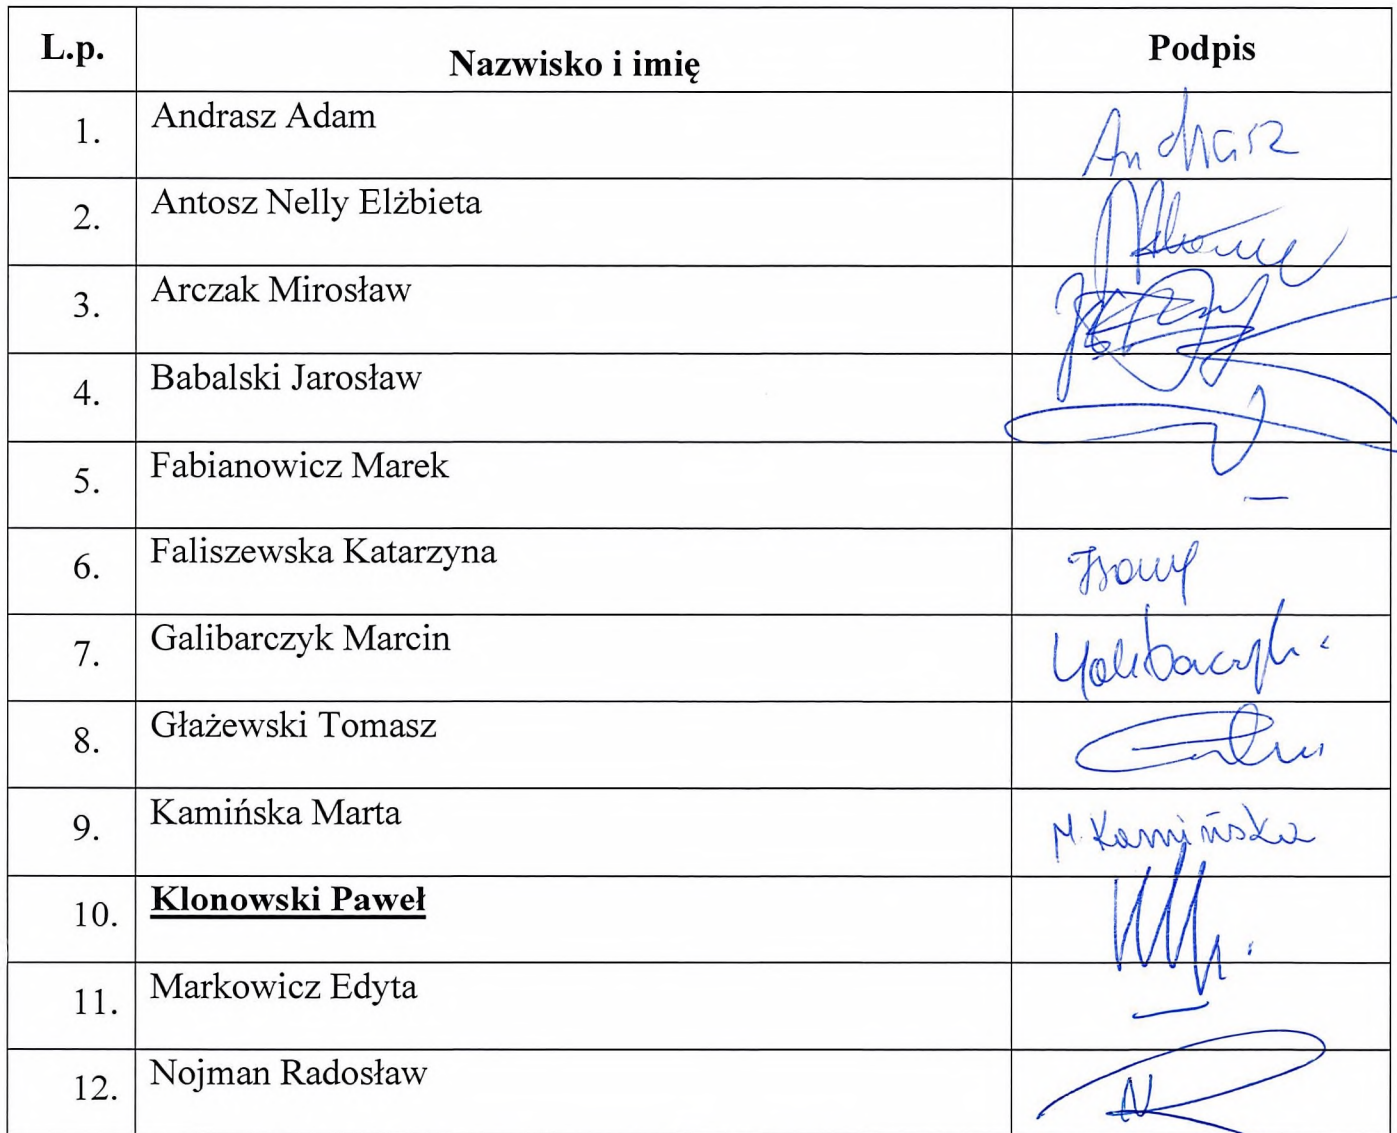 L.p. Nazwisko i imię Podpis
1. Andrasz Adam Andrasz
2. Antosz Nelly Elżbieta
3. Arczak Mirosław
4. Babalski Jarosław
5. Fabianowicz Marek —
6. Faliszewska Katarzyna
7. Galibarczyk Marcin
8. Głażewski Tomasz
9. Kamińska Marta M. Kamińska
10. Klonowski Paweł
11. Markowicz Edyta —
12. Nojman Radosław